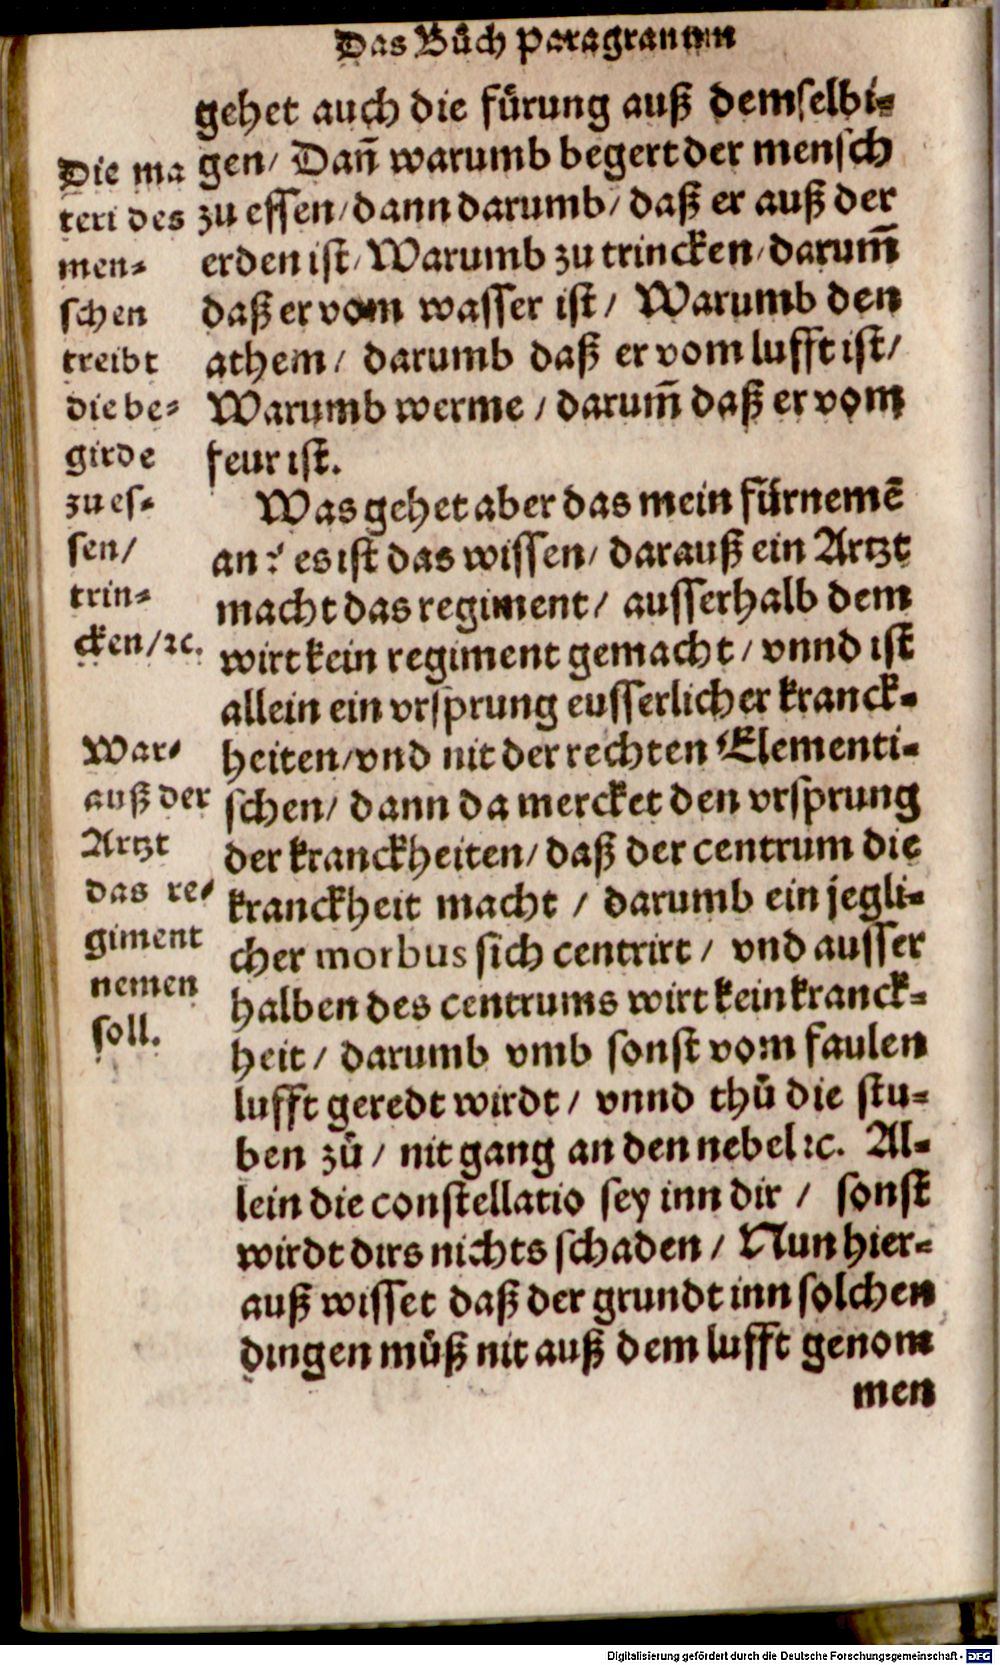 Das Bůch Paragranum
gehet auch die fürung auß demselbi⸗
gen/ Dañ warumb begert der mensch
zu essen/ dann darumb/ daß er auß der
erden ist/ Warumb zu trincken/ darum̃
daß er vom wasser ist/ Warumb den
athem/ darumb daß er vom lufft ist/
Warumb werme/ darum̃ daß er vom
feur ist.
Was gehet aber das mein fürnemẽ
an? es ist das wissen/ darauß ein Artzt
macht das regiment/ ausserhalb dem
wirt kein regiment gemacht/ vnnd ist
allein ein vrsprung eusserlicher kranck⸗
heiten/ vnd nit der rechten Elementi⸗
schen/ dann da mercket den vrsprung
der kranckheiten/ daß der centrum die
kranckheit macht/ darumb ein jegli⸗
cher morbus sich centrirt/ vnd ausser
halben des centrums wirt kein kranck⸗
heit/ darumb vmb sonst vom faulen
lufft geredt wirdt/ vnnd thů die stu⸗
ben zů/ nit gang an den nebel ꝛc. Al⸗
lein die constellatio sey inn dir/ sonst
wirdt dirs nichts schaden/ Nun hier⸗
auß wisset daß der grundt inn solchen
dingen můß nit auß dem lufft genom
men
Die ma
teri des
men⸗
schen
treibt
die be⸗
girde
zu es⸗
sen/
trin⸗
cken/ꝛc.
War⸗
auß der
Artzt
das re⸗
giment
nemen
soll.
Digitalisierung gefördert durch die Deutsche Forschungsgemeinschaft - DFG